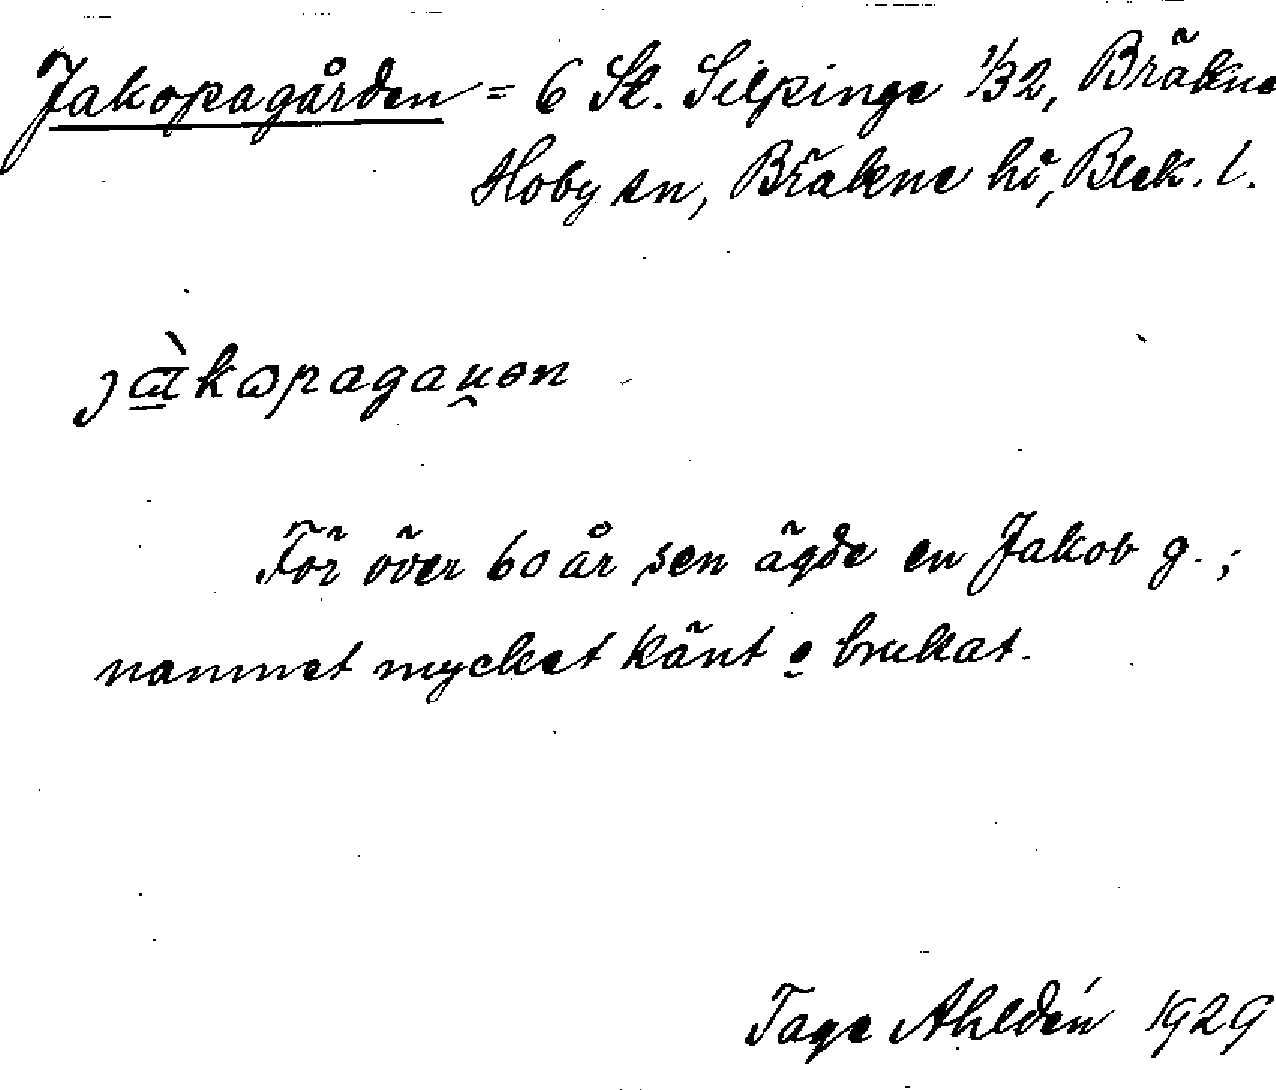 Jakopagården = 6 St. Silpinge 1/32, Bräkne
Hoby sn, Bräkne hd, Blek. l.
jàkopagau̯ən
För över 60 år sen ägde en Jakob g.;
namnet mycket känt o brukat.
Tage Ahldén 1929